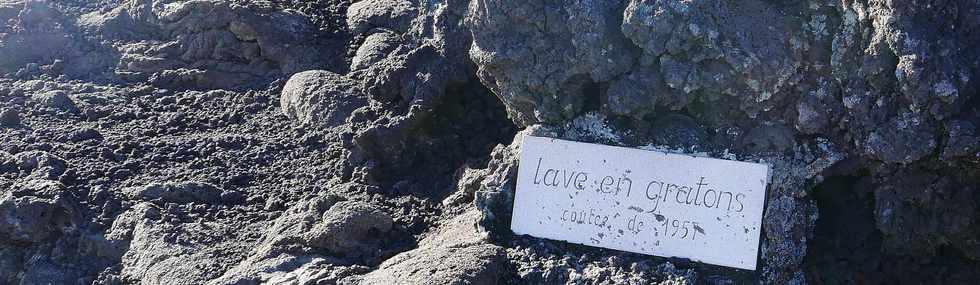 lave en gratons
coulée de 1957